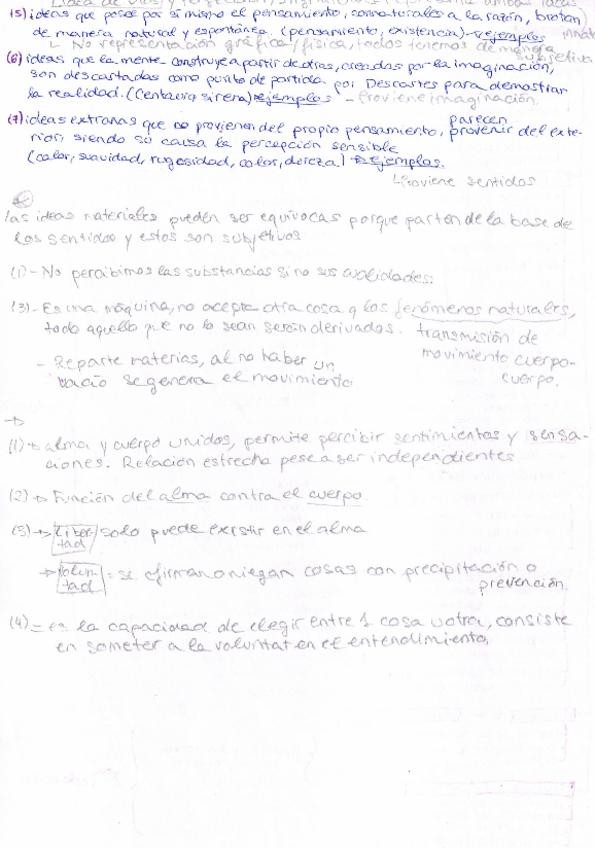 Idea de Dios y perfección,
(5) ideas que posee por si mismo el pensamiento, connaturales a la razón, brotan
de manera natural y espontánea. (pensamiento, existencia) → ejemplos innata
↳ No representación gráfica/física, todos tenemos de manera subjetiva
(6) ideas que la mente construye a partir de otras, creadas por la imaginación,
son descartadas como punto de partida por Descartes para demostrar
la realidad. (Centauro sirena) → ejemplos - Proviene imaginación.
(7) ideas extrañas que no provienen del propio pensamiento, parecen provenir del exte-
rior, siendo su causa la percepción sensible
(calor, suavidad, rugosidad, color, dureza) → ejemplos.
↳ Proviene sentidos
las ideas materiales pueden ser equivocas porque parten de la base de
los sentidos y estos son subjetivos
(1) - No percibimos las substancias si no sus cualidades.
(3) - Es una máquina, no acepta otra cosa q los fenómenos naturales,
todo aquello que no lo sean serán derivados. transmisión de
movimiento cuerpo-
cuerpo.
- Reparte materias, al no haber un
vacío se genera el movimiento
→
(1) → alma y cuerpo unidos, permite percibir sentimientos y sensa-
ciones. Relación estrecha pese a ser independientes
(2) → Función del alma contra el cuerpo.
(3) → Liber-
tad solo puede existir en el alma
→ Volun-
tad = se afirman o niegan cosas con precipitación o
prevención.
(4) = es la capacidad de elegir entre 1 cosa u otra, consiste
en someter a la voluntat en el entendimiento.